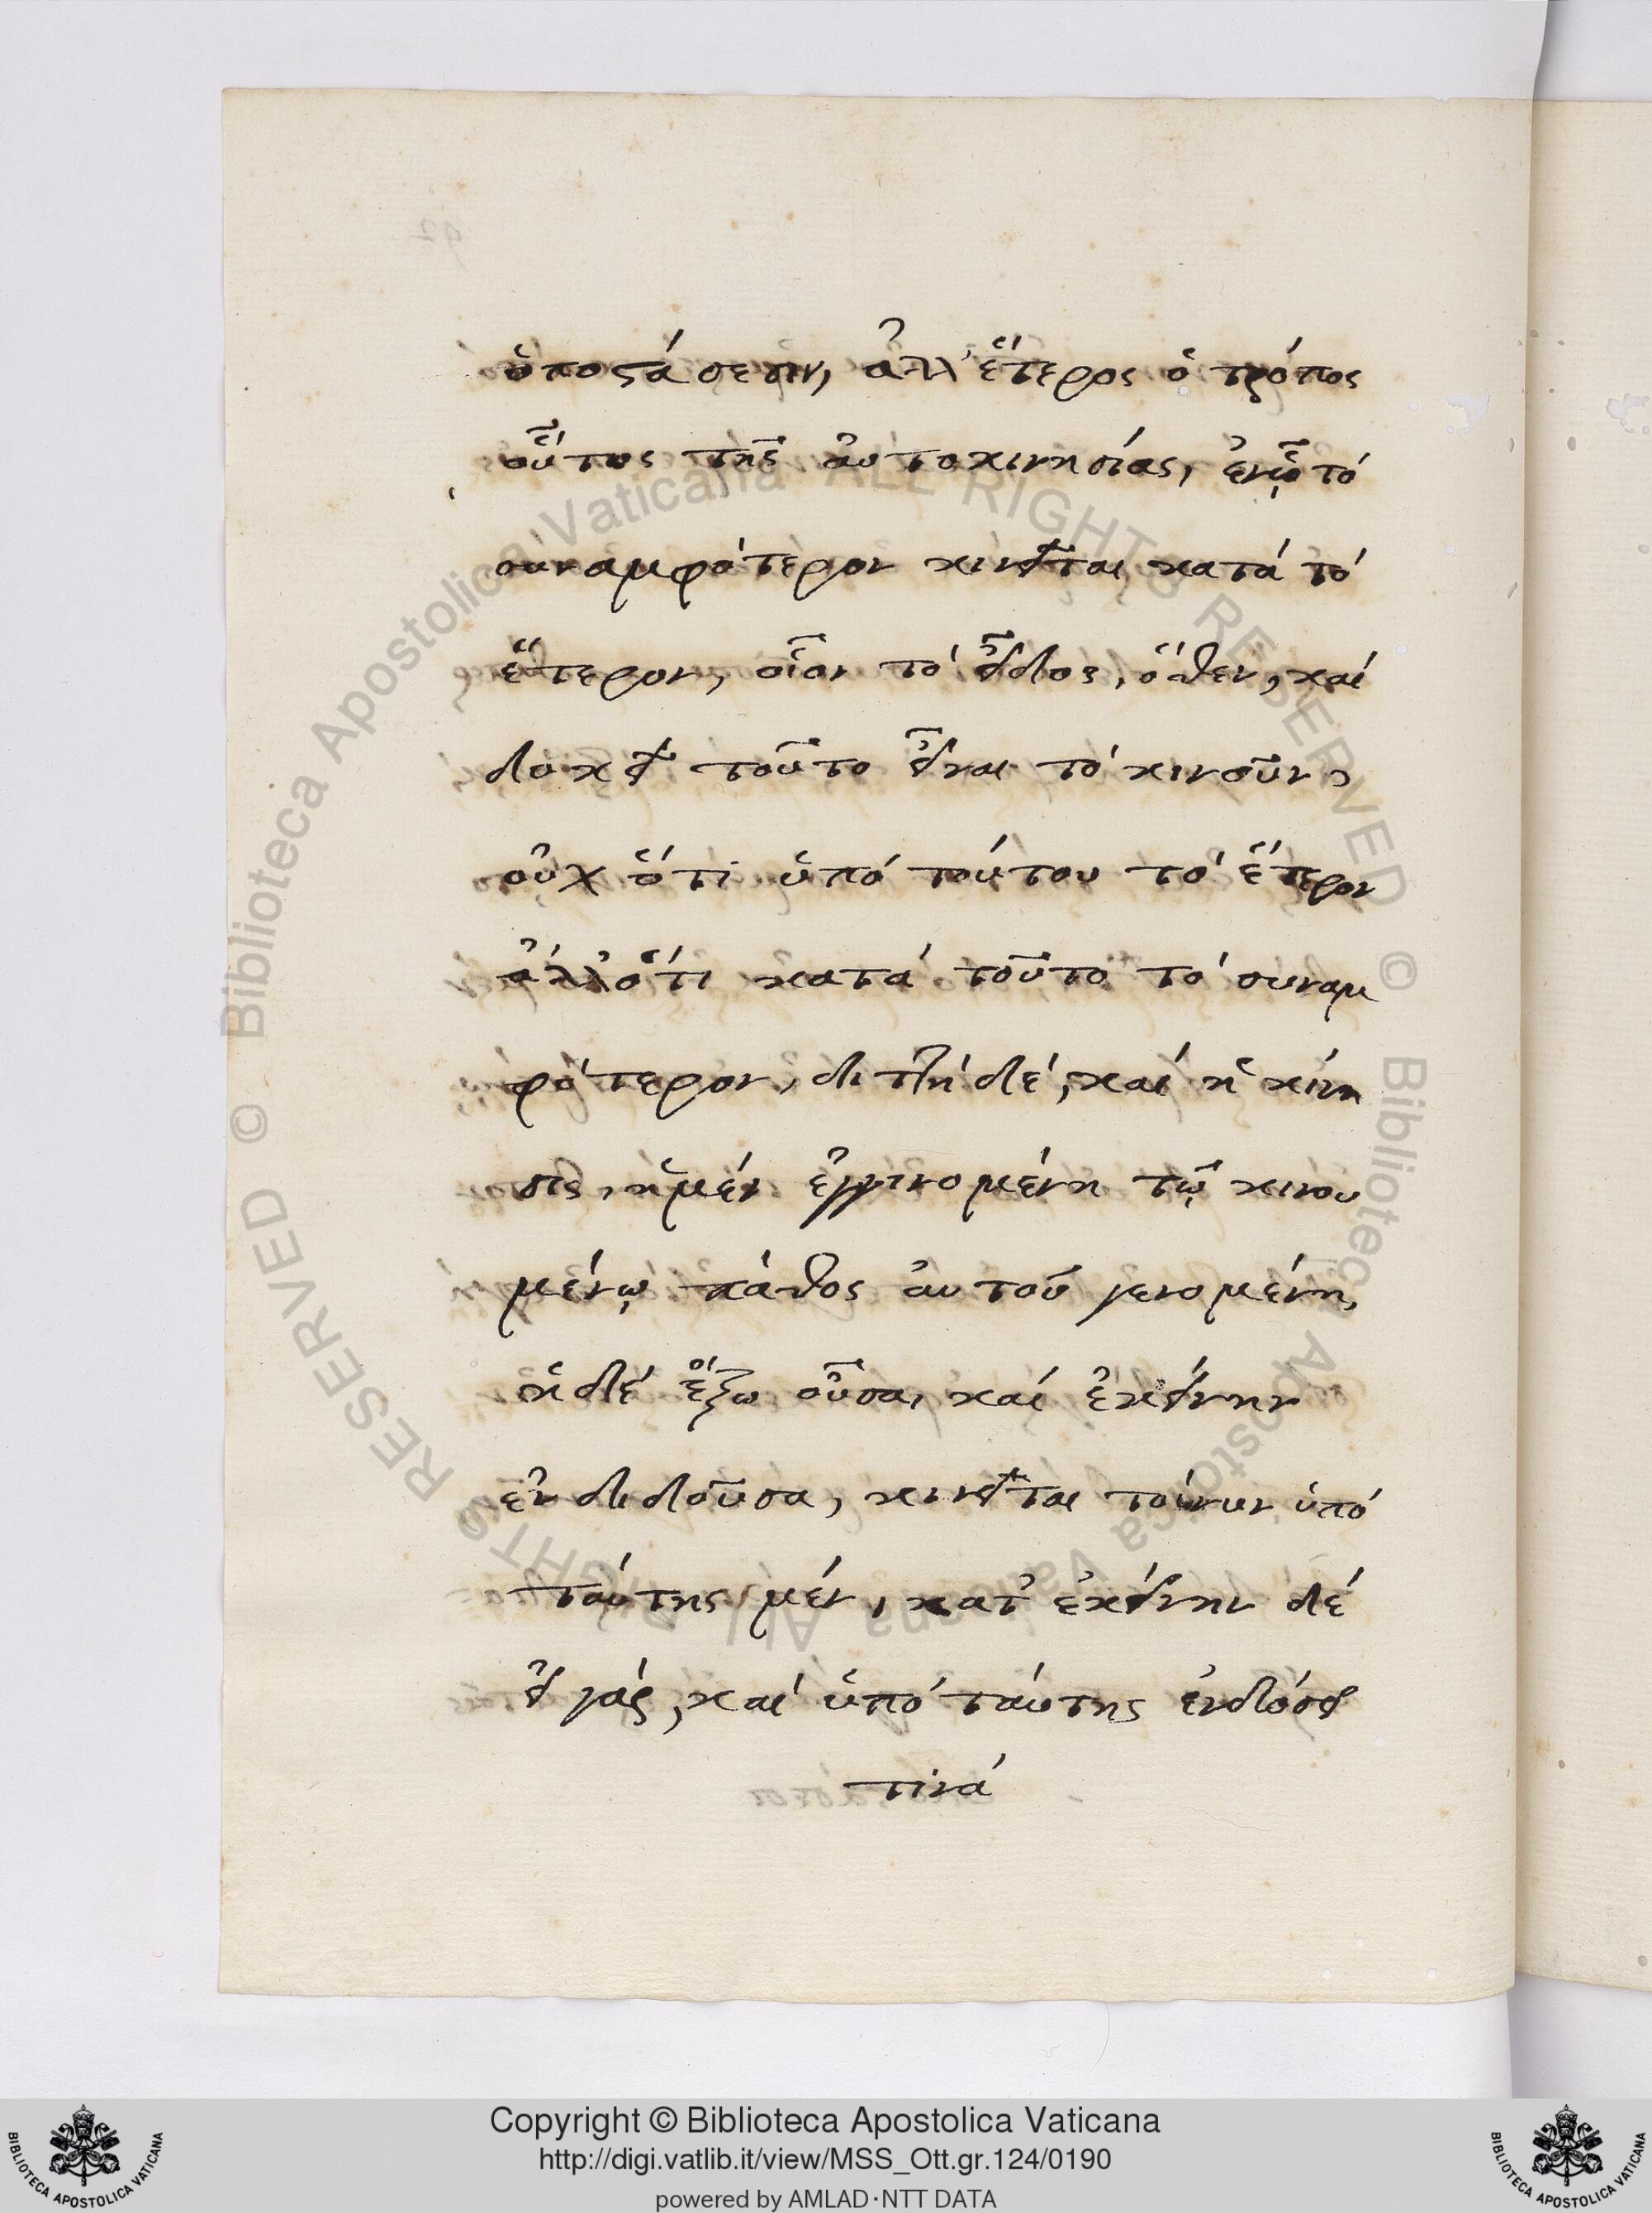 ὑποστάσεσιν, ἀλλ' ἕτερος ὁ τρόπος
οὗτος τῆς ἀυτοκινησίας, ἐνῷ τό
συναμφότερον κινεῖται κατά τό
ἕτερον, οἷον τό εἶδος, ὅθεν, καί
δοκεῖ τοῦτο εἶναι τό κινοῦν,
οὐχ ὅτι ὑπό τούτου τό ἕτερον
ἀλλ' ὅτι κατά τοῦτο τό συναμ
φότερον, διτλή δέ, καί ἡ κίνη
σις, ἡ μέν ἐγγινομένη τῷ κινου
μένῳ πάθος ἀυτοῦ γενομένη,
ἡ δέ ἔξω οὖσα, καί ἐκείνην
ἐνδιδοῦσα, κινεῖται τοίνυν ὑπό
ταύτης μέν, κατ' ἐκείνην δέ
εἰ γάρ, καί ὑπό ταύτης ἐνδόσει
τινά
Copyright © Biblioteca Apostolica Vaticana
http://digi.vatlib.it/view/MSS_Ott.gr.124/0190
powered by AMLAD·NTT DATA
BIBLIOTECA APOSTOLICA VATICANA
BIBLIOTECA APOSTOLICA VATICANA
© Biblioteca Apostolica Vaticana ALL RIGHTS RESERVED © Biblioteca Apostolica Vaticana ALL RIGHTS RESERVED